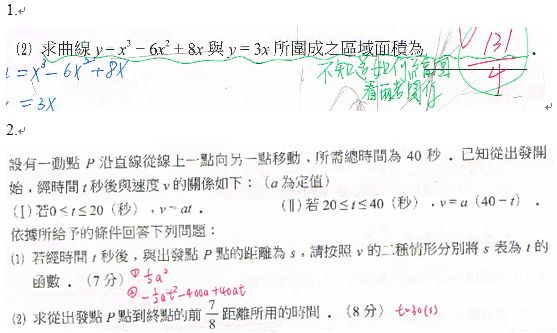 1.
(2) 求曲線 y = x³ − 6x² + 8x 與 y = 3x 所圍成之區域面積為 131/4 .
= x³ − 6x² + 8x
不知道如何繪圖
= 3x
2.
設有一動點 P 沿直線從線上一點向另一點移動，所需總時間為 40 秒．已知從出發開
始，經時間 t 秒後與速度 v 的關係如下：（a 為定值）
(Ⅰ) 若 0 ≤ t ≤ 20（秒），v = at． (Ⅱ) 若 20 ≤ t ≤ 40（秒），v = a（40 − t）．
依據所給予的條件回答下列問題：
(1) 若經時間 t 秒後，與出發點 P 點的距離為 s，請按照 v 的二種情形分別將 s 表為 t 的
函數．（7 分） ① ½a²
② −½at² − 400a + 40at
(2) 求從出發點 P 點到終點的前 7/8 距離所用的時間．（8 分） t=30(s)